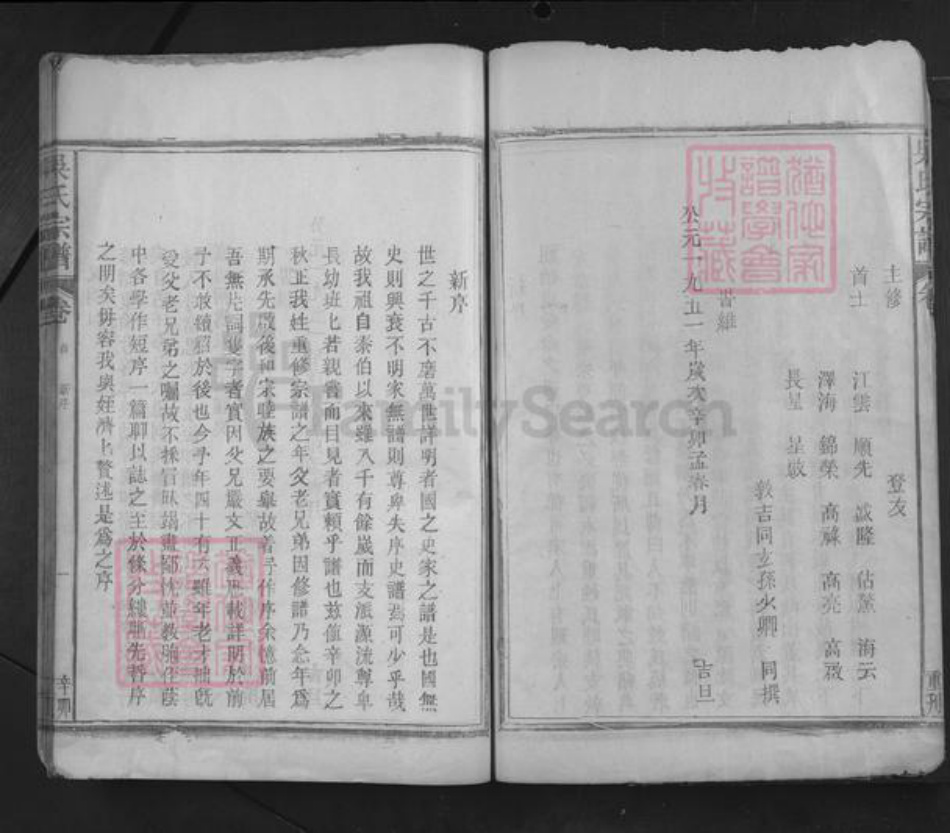 吳氏宗譜 卷
主修 登友
首士 江雲 順先 誠隆 佔鰲 海云
澤海 錦榮 高祿 高亮 高發
長星 星敏
敦吉同玄孫少卿 同撰
皆維
公元一九五一年歲次辛卯孟春月 吉旦
猶他家譜學會收藏
新序
世之千古不磨萬世詳明者國之史家之譜是也國無
史則興衰不明家無譜則尊卑失序史譜焉可少乎哉
故我祖自泰伯以來雖八千有餘歲而支派源流尊卑
長幼班上若親嘗而目見者實賴乎譜也茲值辛卯之
秋正我姓重修宗譜之年父老兄弟因修譜乃念年爲
期承先啟後和宗睦族之要舉故着予作序余憶前居
吾無片詞隻字者實因父兄嚴文正義思載詳明於前
予不敢續貂於後也今予年四十有六雖年老才拙旣
受父老兄弟之囑故不揣
中各學作短序一篇聊以誌之至於條分縷晰先哲序
之明矣毋容我與姪濟上贅述是爲之序
吳氏宗譜 卷 首 新序 一 辛卯
重刊
FamilySearch